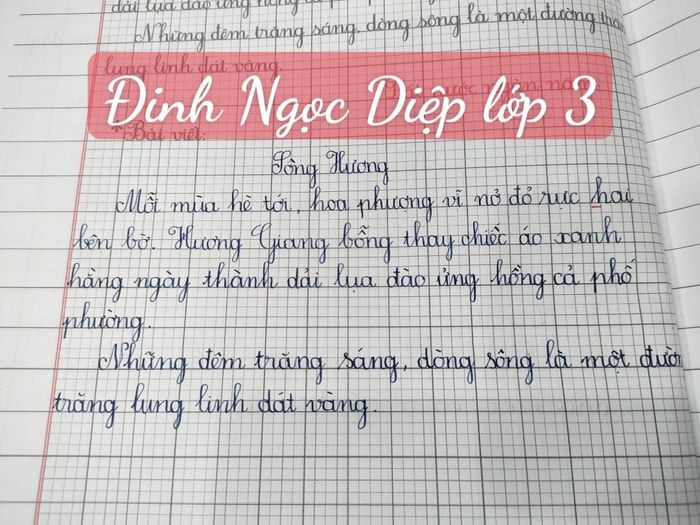 dải lụa đào ửng hồng
Những đêm trăng sáng, dòng sông là một đường trăn
lung linh dát vàng.
Đinh Ngọc Diệp lớp 3
* Bài viết:
Sông Hương
Mỗi mùa hè tới, hoa phượng vĩ nở đỏ rực hai
bên bờ. Hương Giang bỗng thay chiếc áo xanh
hằng ngày thành dải lụa đào ửng hồng cả phố
phường.
Những đêm trăng sáng, dòng sông là một đườn
trăng lung linh dát vàng.